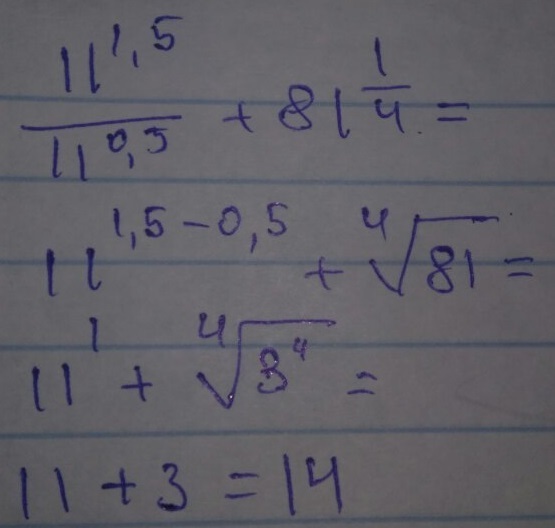 11^1,5 / 11^0,5 + 81^1/4 =
11^1,5-0,5 + ⁴√81 =
11^1 + ⁴√3^4 =
11 + 3 = 14